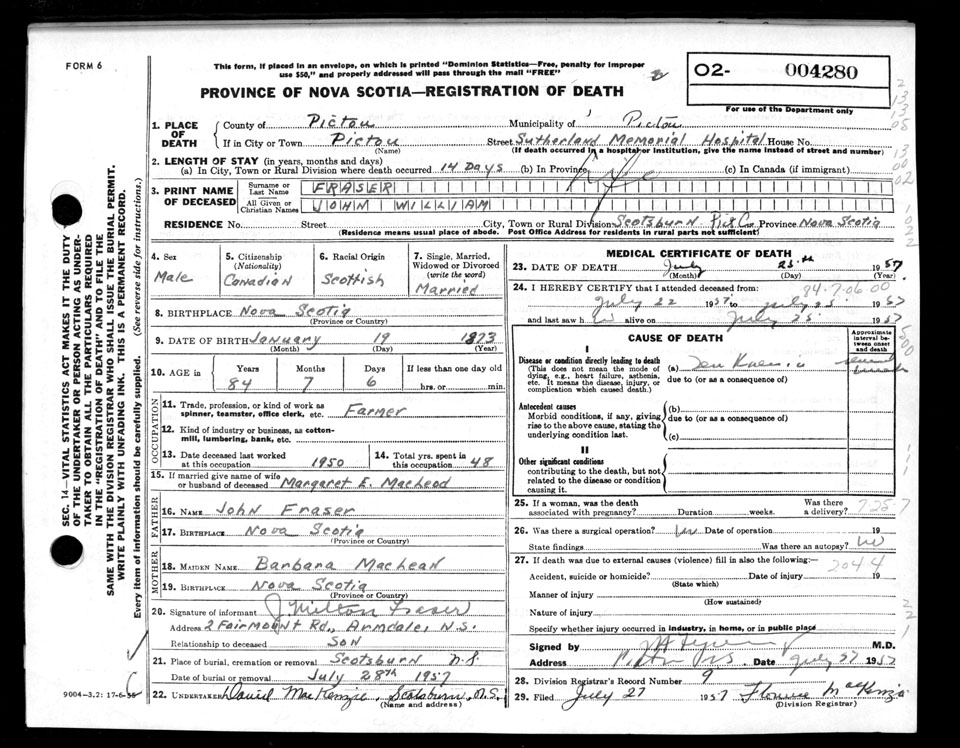 FORM 6
This form, if placed in an envelope, on which is printed "Dominion Statistics—Free, penalty for improper
use $50," and properly addressed will pass through the mail "FREE"
PROVINCE OF NOVA SCOTIA—REGISTRATION OF DEATH
O2- 004280
For use of the Department only
1. PLACE OF DEATH
County of Pictou Municipality of Pictou
If in City or Town Pictou Street Sutherland Memorial Hospital House No.
(Name) (If death occurred in a hospital or institution, give the name instead of street and number)
2. LENGTH OF STAY (in years, months and days)
(a) In City, Town or Rural Division where death occurred 14 Days (b) In Province Life (c) In Canada (if immigrant)
3. PRINT NAME OF DECEASED
Surname or Last Name FRASER
All Given or Christian Names JOHN WILLIAM
RESIDENCE No. Street City, Town or Rural Division Scotsburn Pict Co Province Nova Scotia
(Residence means usual place of abode. Post Office Address for residents in rural parts not sufficient)
4. Sex
Male
5. Citizenship (Nationality)
Canadian
6. Racial Origin
Scottish
7. Single, Married, Widowed or Divorced (write the word)
Married
8. BIRTHPLACE Nova Scotia
(Province or Country)
9. DATE OF BIRTH January 19 1873
(Month) (Day) (Year)
10. AGE in
Years Months Days If less than one day old
84 7 6 hrs. or min.
OCCUPATION
11. Trade, profession, or kind of work as
spinner, teamster, office clerk, etc. Farmer
12. Kind of industry or business, as cotton-
mill, lumbering, bank, etc.
13. Date deceased last worked
at this occupation 1950
14. Total yrs. spent in
this occupation 48
15. If married give name of wife
or husband of deceased Margaret E. MacLeod
FATHER
16. NAME John Fraser
17. BIRTHPLACE Nova Scotia
(Province or Country)
MOTHER
18. MAIDEN NAME Barbara MacLean
19. BIRTHPLACE Nova Scotia
(Province or Country)
20. Signature of informant J. Milton Fraser
Address 2 Fairmount Rd., Armdale, N.S.
Relationship to deceased Son
21. Place of burial, cremation or removal Scotsburn N.S.
Date of burial or removal July 28th 1957
22. UNDERTAKER Daniel MacKenzie, Scotsburn, N.S.
(Name and address)
9004-3.2: 17-6-55
MEDICAL CERTIFICATE OF DEATH
23. DATE OF DEATH July 25th 1957
(Month) (Day) (Year)
24. I HEREBY CERTIFY that I attended deceased from:
84-7-06 00
July 22 1957 to July 25 1957
and last saw him alive on July 25 1957
CAUSE OF DEATH
Approximate interval between onset and death
I
Disease or condition directly leading to death
(This does not mean the mode of
dying, e.g., heart failure, asthenia,
etc. It means the disease, injury, or
complication which caused death.)
(a)
due to (or as a consequence of)
several
Antecedent causes
Morbid conditions, if any, giving
rise to the above cause, stating the
underlying condition last.
(b)
due to (or as a consequence of)
(c)
II
Other significant conditions
contributing to the death, but not
related to the disease or condition
causing it.
25. If a woman, was the death
associated with pregnancy? Duration weeks. Was there a delivery?
26. Was there a surgical operation? no Date of operation 19
State findings Was there an autopsy? no
27. If death was due to external causes (violence) fill in also the following:—
2044
Accident, suicide or homicide? Date of injury 19
(State which)
Manner of injury
(How sustained)
Nature of injury
Specify whether injury occurred in industry, in home, or in public place
Signed by M.D.
Address Pictou N.S. Date July 27 1957
28. Division Registrar's Record Number 9
29. Filed July 27 1957 Florence MacKenzie
(Division Registrar)
SEC. 14—VITAL STATISTICS ACT MAKES IT THE DUTY
OF THE UNDERTAKER OR PERSON ACTING AS UNDER-
TAKER TO OBTAIN ALL THE PARTICULARS REQUIRED
IN THE "REGISTRATION OF DEATH" AND TO FILE THE
SAME WITH THE DIVISION REGISTRAR WHO SHALL ISSUE THE BURIAL PERMIT.
WRITE PLAINLY WITH UNFADING INK. THIS IS A PERMANENT RECORD.
Every item of information should be carefully supplied. (See reverse side for instructions.)